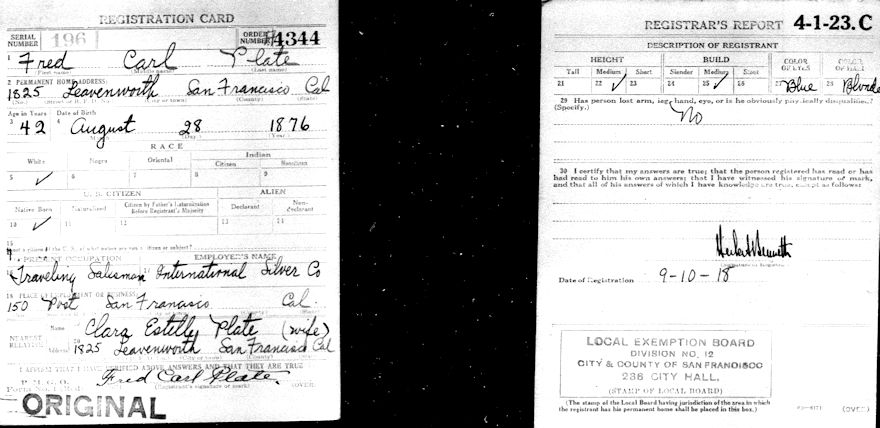 REGISTRATION CARD
SERIAL NUMBER 196 ORDER NUMBER 4344
1 Fred Carl Plate
(First name) (Middle name) (Last name)
2 PERMANENT HOME ADDRESS:
1825 Leavenworth San Francisco Cal
(No.) (Street or R. F. D. No.) (City or town) (County) (State)
Age in Years Date of Birth
3 42 4 August 28 1876
(Day) (Year)
RACE
White Negro Oriental Indian
Citizen Noncitizen
5 ✓ 6 7 8 9
U. S. CITIZEN ALIEN
Native Born Naturalized Citizen by Father's Naturalization Before Registrant's Majority Declarant Non-declarant
10 ✓ 11 12 13 14
15
PRESENT OCCUPATION EMPLOYER'S NAME
16 Traveling Salesman 17 International Silver Co
18 PLACE OF EMPLOYMENT OR BUSINESS:
150 Post San Francisco Cal.
NEAREST RELATIVE Name Clara Estelle Plate (wife)
Address 20 1825 Leavenworth San Francisco Cal
I AFFIRM THAT I HAVE VERIFIED ABOVE ANSWERS AND THAT THEY ARE TRUE
P. M. G. O.
Form No. 1 Fred Carl Plate.
(Registrant's signature or mark) (OVER)
ORIGINAL
REGISTRAR'S REPORT 4-1-23.C
DESCRIPTION OF REGISTRANT
HEIGHT BUILD COLOR OF EYES COLOR OF HAIR
Tall Medium Short Slender Medium Stout
21 22 ✓ 23 24 25 ✓ 26 27 Blue 28 Blonde
29 Has person lost arm, leg, hand, eye, or is he obviously physically disqualified?
(Specify.) No
30 I certify that my answers are true; that the person registered has read or has
had read to him his own answers; that I have witnessed his signature or mark,
and that all of his answers of which I have knowledge are true, except as follows:
Date of Registration 9-10-18
LOCAL EXEMPTION BOARD
DIVISION NO. 12
CITY & COUNTY OF SAN FRANCISCO
236 CITY HALL,
(STAMP OF LOCAL BOARD)
(The stamp of the Local Board having jurisdiction of the area in which
the registrant has his permanent home shall be placed in this box.)
(OVER)